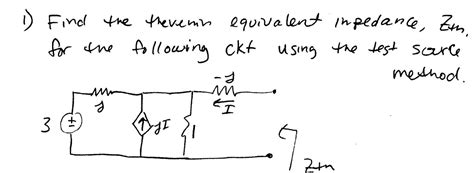 1) Find the thevenin equivalent impedance, Zth,
for the following ckt using the test source
method.
-j
j
I
3
+
-
jI
1
Zth